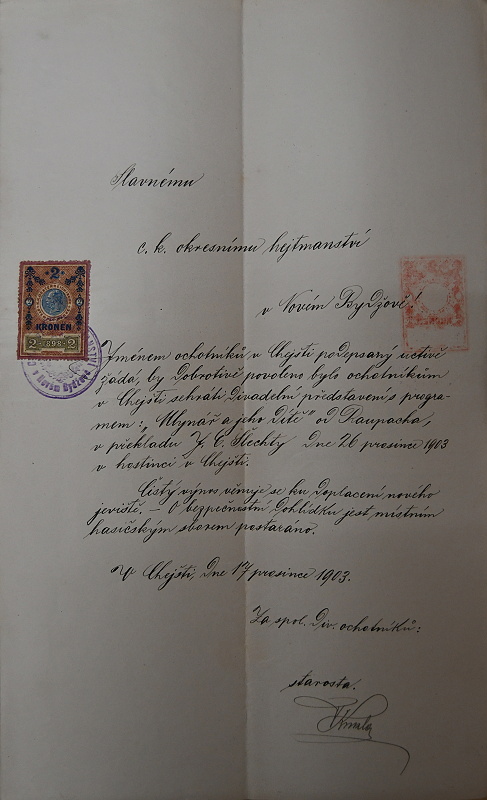 Slavnému
c. k. okresnímu hejtmanství
v Novém Bydžově!
2
KRONEN
2 1898 2
Jménem ochotníků v Chejšti podepsaný uctivě
žádá, by dobrotivě povoleno bylo ochotníkům
v Chejšti sehráti divadelní představení s progra-
mem: „Mlynář a jeho dítě" od Raupacha,
v překladu J. C. Šlechty dne 26 prosince 1903
v hostinci v Chejšti.
Čistý výnos věnuje se ku doplacení nového
jeviště. – O bezpečnostní dohlídku jest místním
hasičským sborem postaráno.
V Chejšti, dne 17 prosince 1903.
Za spol. div. ochotníků:
starosta.